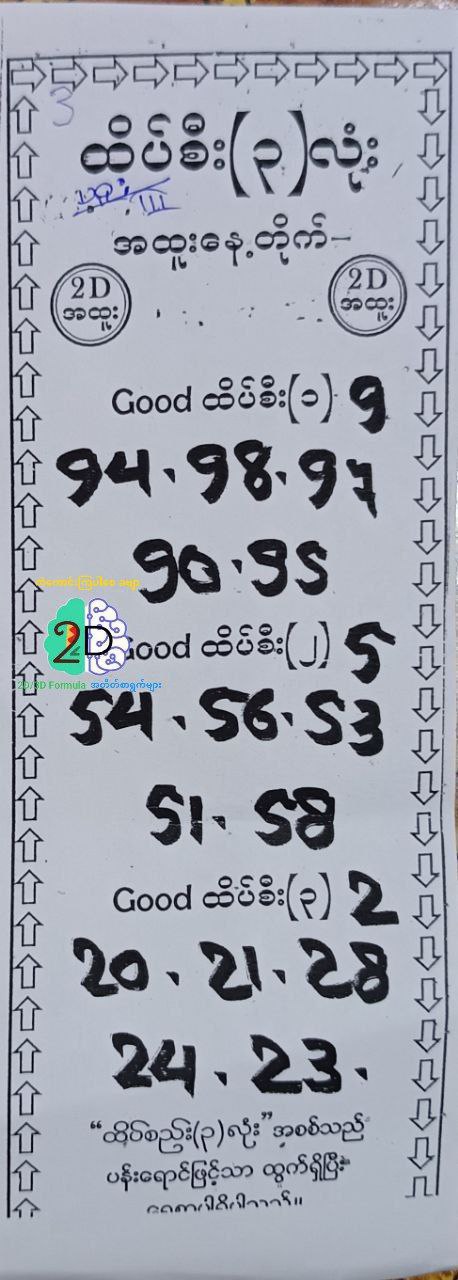 3
ထိပ်စီး(၃)လုံး
III
အထူးနေ့တိုက်–
2D
အထူး
2D
အထူး
Good ထိပ်စီး(၁) 9
94、98、97
90、95
2D
Good ထိပ်စီး(၂) 5
2D/3D Formula အတိတ်စာရွက်များ
54、56、53
51、58
Good ထိပ်စီး(၃) 2
20、21、28
24、23、
“ထိပ်စည်း(၃)လုံး”အစစ်သည်
ပန်းရောင်ဖြင့်သာ ထွက်ရှိပြီး